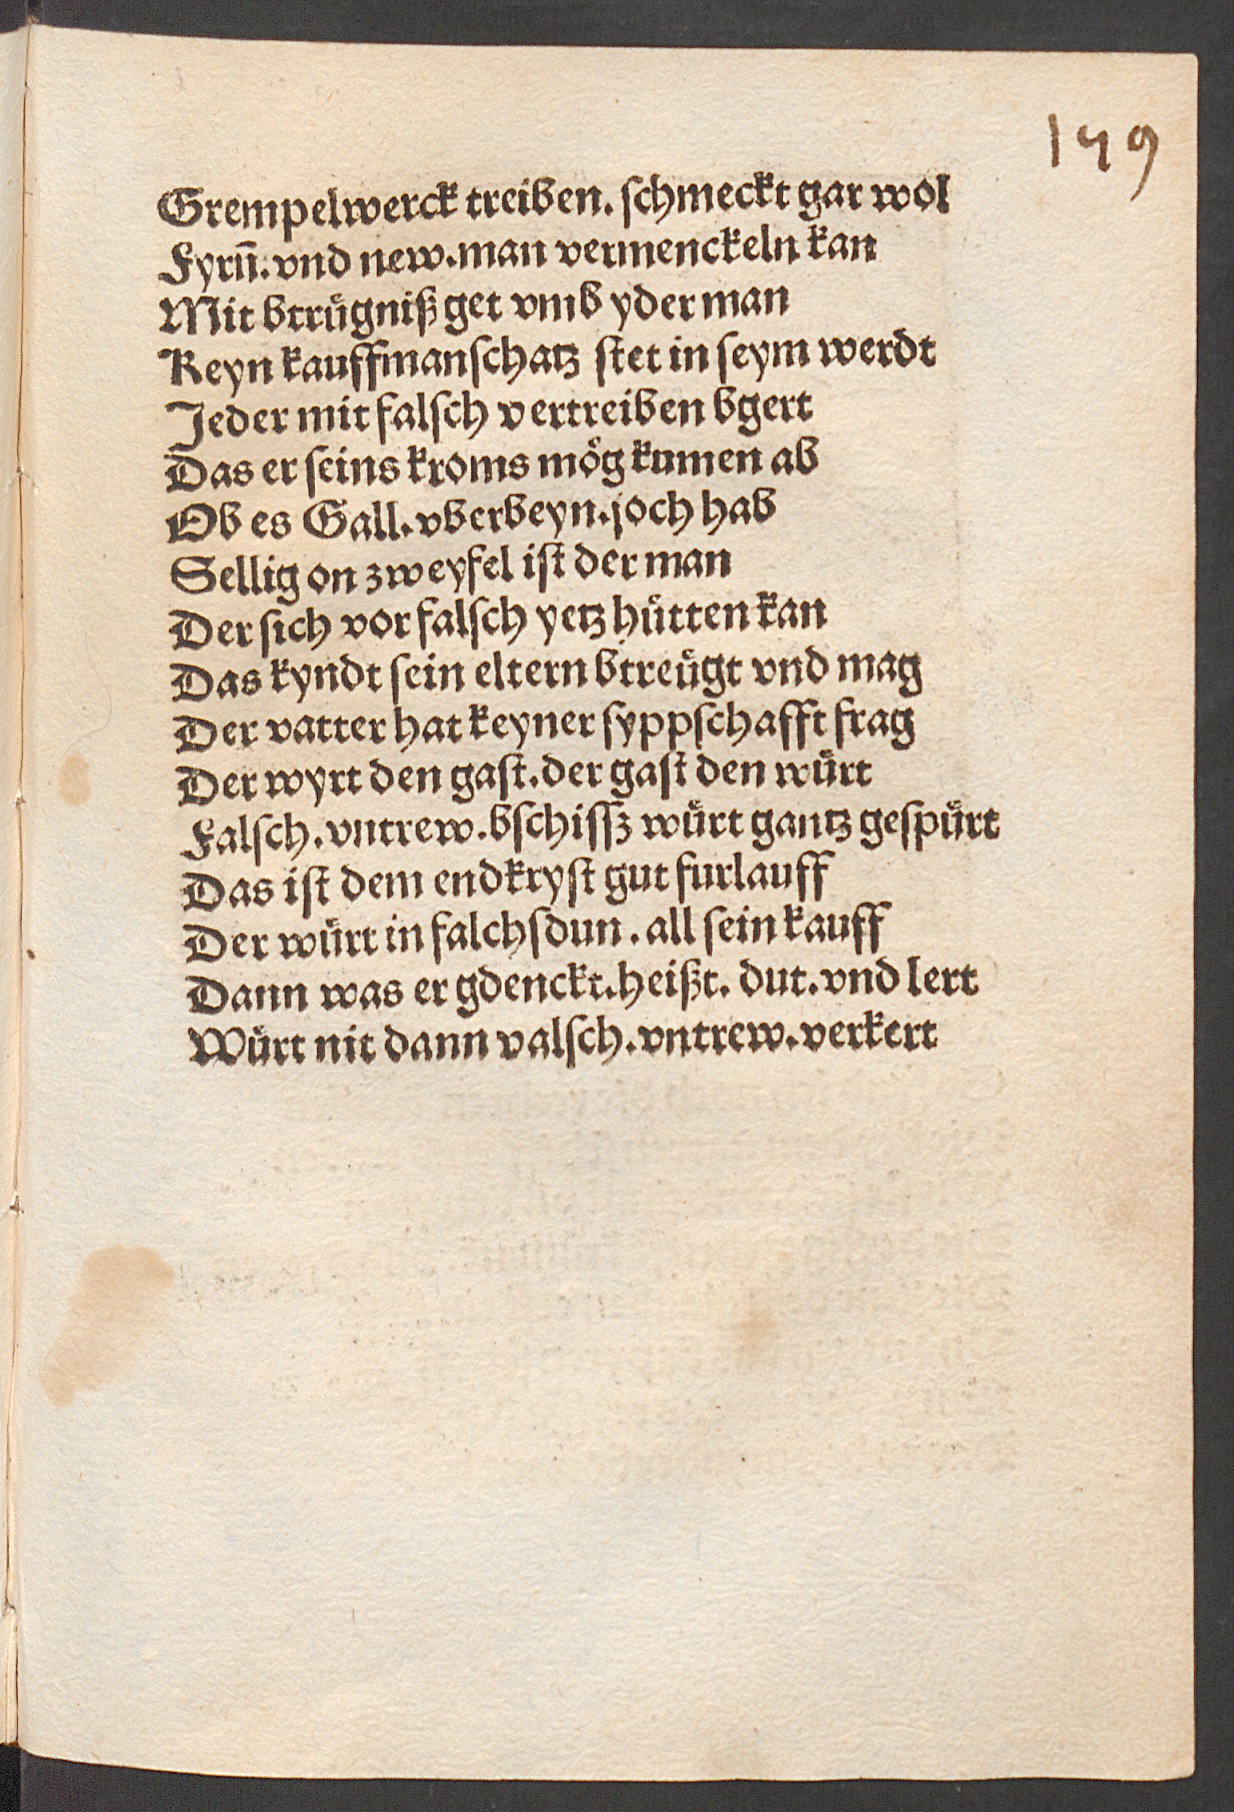 149
Grempelwerck treiben. schmeckt gar wol
Fyrn̄. vnd new. man vermenckeln kan
Mit btrügniß get vmb yder man
Keyn kauffmanschatz stet in seym werdt
Jeder mit falsch vertreiben bgert
Das er seins kroms mög kumen ab
Ob es Gall. vberbeyn. joch hab
Sellig on zweyfel ist der man
Der sich vor falsch yetz hütten kan
Das kyndt sein eltern btreügt vnd mag
Der vatter hat keyner syppschafft frag
Der wyrt den gast. der gast den würt
Falsch. vntrew. bschissz würt gantz gespürt
Das ist dem endkryst gut furlauff
Der würt in falchsdun. all sein kauff
Dann was er gdenckt. heißt. dut. vnd lert
Würt nit dann valsch. vntrew. verkert